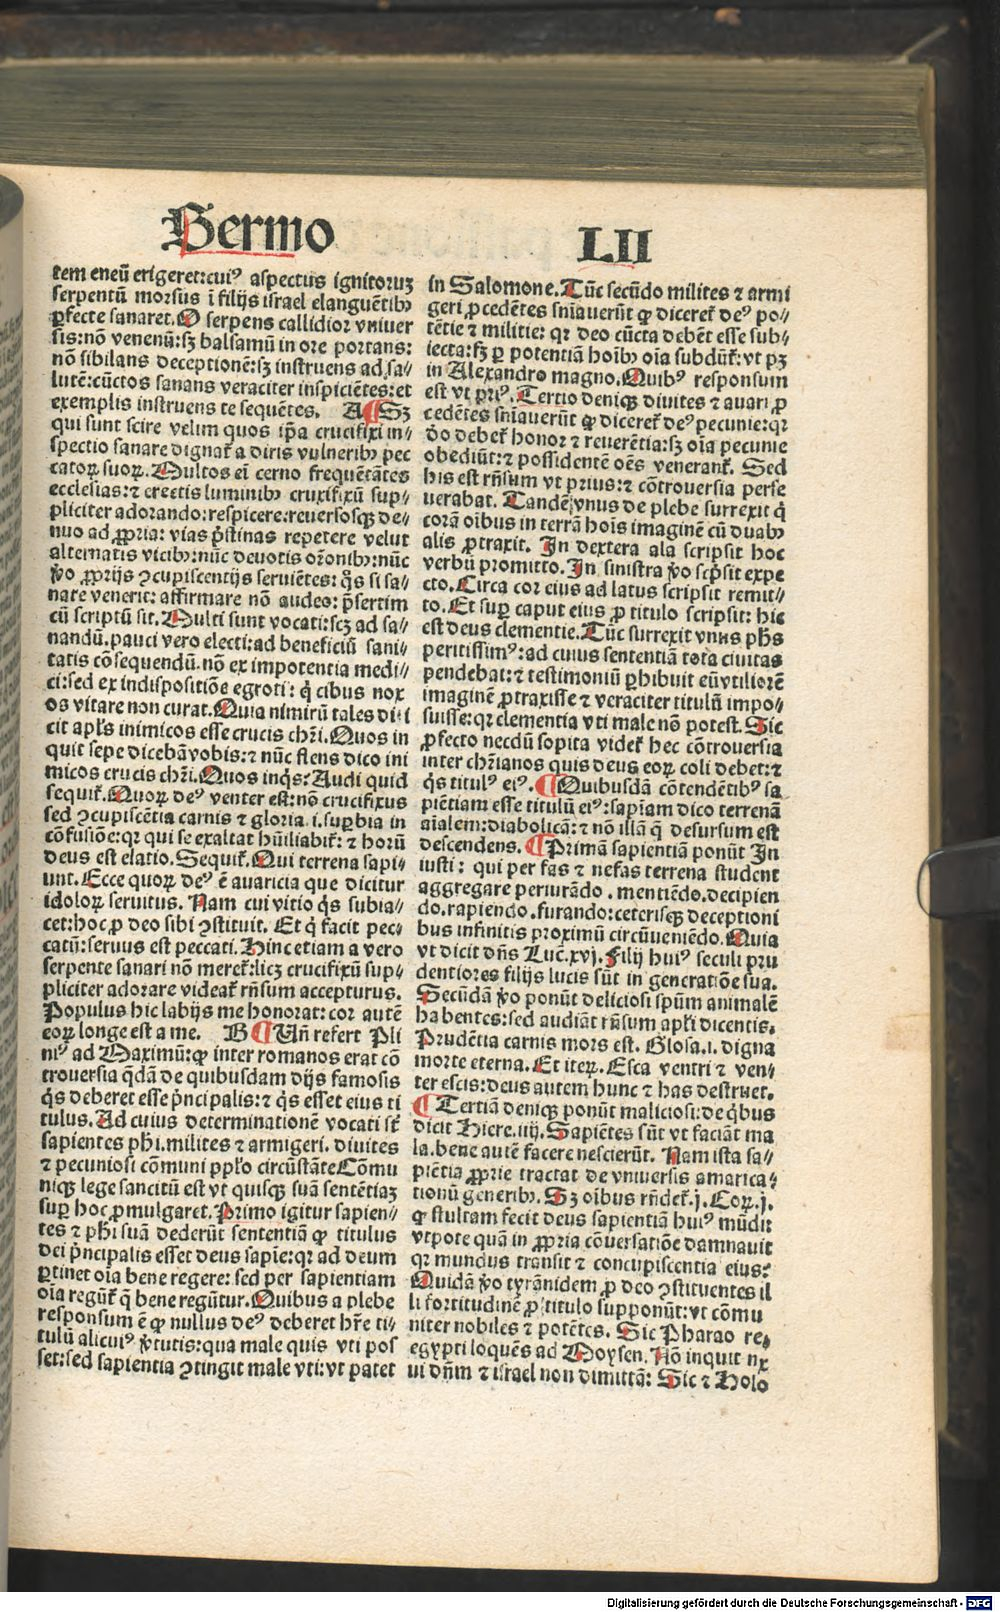 Sermo
LII
tem eneū erigeret:cuiꝰ aspectus ignitoruꝫ
serpentū morsus ī filijs israel elanguētibꝫ
ꝑfecte sanaret. O serpens callidior vniuer
sis:nō venenū:sꝫ balsamū in ore portans:
nō sibilans deceptionē:sꝫ instruens ad sa⸗
lutē:cūctos sanans veraciter inspiciētes:et
exemplis instruens te sequētes. A ¶ Sꝫ
qui sunt scire velim quos ip̄a crucifixi in⸗
spectio sanare dignat᷑ a diris vulneribꝫ pec
catoꝝ suoꝝ. Multos eī cerno frequētātes
ecclesias:⁊ erectis luminibꝫ crucifixū sup⸗
pliciter adorando:respicere:reuersosqꝫ de⸗
nuo ad ꝓpria: vias p̄stinas repetere velut
alternatis vicibꝫ:nūc deuotis orōnibꝫ:nūc
ṽo ꝓprijs ꝯcupiscentijs seruiētes: q̄s si sa⸗
nare venerit: affirmare nō audeo: p̄sertim
cū scriptū sit. Multi sunt vocati:scꝫ ad sa⸗
nandū.pauci vero electi:ad beneficiū sani⸗
tatis cōsequendū.nō ex impotentia medi⸗
ci:sed ex indispositiōe egroti: q̄ cibus nox
os vitare non curat. Quia nimirū tales di i
cit apl̓s inimicos esse crucis chr̄i. Quos in
quit sepe dicebā vobis:⁊ nūc flens dico ini
micos crucis chr̄i. Quos inq̄s: Audi quid
sequit᷑. Quoꝝ deꝰ venter est:nō crucifixus
sed ꝯcupiscētia carnis ⁊ gloria.i.suꝑbia in
cōfusiōe:qꝛ qui se exaltat hūiliabit᷑: ⁊ horū
deus est elatio. Sequit᷑. Qui terrena sapi⸗
unt. Ecce quoꝝ deꝰ ē auaricia que dicitur
idoloꝝ seruitus. Nam cui vitio q̄s subia⸗
cet:hoc ꝓ deo sibi ꝯstituit. Et q̄ facit pec⸗
catū:seruus est peccati. Hinc etiam a vero
serpente sanari nō meret᷑:licꝫ crucifixū sup⸗
pliciter adorare videat᷑ rn̄sum accepturus.
Populus hic labijs me honorat: cor autē
eoꝝ longe est a me. B ¶ Un̄ refert Pli
niꝰ ad Maximū:ꝙ inter romanos erat cō
trouersia q̄dā de quibusdam dijs famosis
q̄s deberet esse p̄ncipalis:⁊ q̄s esset eius ti
tulus. Ad cuius determinationē vocati st̄
sapientes phi.milites ⁊ armigeri. diuites
⁊ pecuniosi cōmuni ppl̓o circūstāte Cōmu
niqꝫ lege sancitū est vt quisqꝫ suā sentētiaꝫ
suꝑ hoc ꝓmulgaret. Primo igitur sapien⸗
tes ⁊ phi suā dederūt sententiā ꝙ titulus
dei p̄ncipalis esset deus sapīe:qꝛ ad deum
ꝑtinet oīa bene regere: sed per sapientiam
oīa regūt᷑ q̄ bene regūtur. Quibus a plebe
responsum ē ꝙ nullus deꝰ deberet hr̄e ti⸗
tulū alicuiꝰ ṽtutis:qua male quis vti pos
set:sed sapientia ꝯtingit male vti:vt patet
in Salomone. Tūc secūdo milites ⁊ armi
geri ꝓcedētes sniauerūt ꝙ diceret᷑ deꝰ po⸗
tētie ⁊ militie: qꝛ deo cūcta debēt esse sub⸗
iecta:sꝫ ꝑ potentiā hoībꝫ oīa subdūt᷑:vt pꝫ
in Alexandro magno. Quibꝰ responsum
est vt priꝰ. Tertio deniqꝫ diuites ⁊ auari ꝓ
cedētes sniauerūt ꝙ diceret᷑ deꝰ pecunie:qꝛ
ḋo debet᷑ honor ⁊ reuerētia:sꝫ oīa pecunie
obediūt:⁊ possidentē oēs venerant᷑. Sed
his est rn̄sum vt prius:⁊ cōtrouersia perse
uerabat. Tandē vnus de plebe surrexit q̄
corā oībus in terrā hoīs imaginē cū duabꝫ
alis ꝓtraxit. In dextera ala scripsit hoc
verbū promitto. In sinistra ṽo scp̄sit expe
cto. Circa cor eius ad latus scripsit remit⸗
to. Et suꝑ caput eius ꝓ titulo scripsit: hic
est deus clementie. Tūc surrexit vnus phs
peritissimꝰ:ad cuius sententiā tota ciuitas
pendebat:⁊ testimoniū ꝑhibuit eū vtiliorē
imaginē ꝓtraxisse ⁊ veraciter titulū impo⸗
suisse:qꝛ clementia vti male nō potest. Sic
ꝓfecto necdū sopita videt᷑ hec cōtrouersia
inter chr̄ianos quis deus eoꝝ coli debet:⁊
q̄s titulꝰ eiꝰ. ¶ Quibusdā cōtendētibꝫ sa
piētiam esse titulū eiꝰ:sapīam dico terrenā
aīalem:diabolicā: ⁊ nō illā q̄ desursum est
descendens. ¶ Primā sapientiā ponūt In
iusti: qui per fas ⁊ nefas terrena student
aggregare periurādo . mentiēdo.decipien
do.rapiendo .furando:ceterisqꝫ deceptioni
bus infinitis proximū circūueniēdo. Quia
vt dicit dn̄s Luc̄.xvj. Filij huiꝰ seculi pru
dentiores filijs lucis sūt in generatiōe sua.
Secūdā ṽo ponūt deliciosi spūm animalē
habentes:sed audiāt rn̄sum apl̓i dicentis.
Prudētia carnis mors est. Glosa.i. digna
morte eterna. Et iteꝝ. Esca ventri ⁊ ven⸗
ter escis:deus autem hunc ⁊ has destruet.
¶ Tertiā deniqꝫ ponūt maliciosi:de q̄bus
dicit Hiere.iiij. Sapiētes sūt vt faciāt ma
la.bene autē facere nescierūt. Nam ista sa⸗
piētia ꝓprie tractat de vniuersis amarica⸗
tionū generibꝫ. Sꝫ oībus rn̄det᷑.j. Coꝝ.j.
ꝙ stultam fecit deus sapientiā huiꝰ mūdi:
vtpote quā in ꝓpria cōuersatiōe damnauit
qꝛ mundus transit ⁊ concupiscentia eius:
Quidā ṽo tyrānidem ꝓ deo ꝯstituentes il
li fortitudinē ꝓ titulo supponūt:vt cōmu
niter nobiles ⁊ potētes. Sic Pharao re⸗
egypti loquēs ad Moysen. Nō inquit nx
ui dn̄m ⁊ israel non dimittā: Sic ⁊ Holo
Digitalisierung gefördert durch die Deutsche Forschungsgemeinschaft - DFG